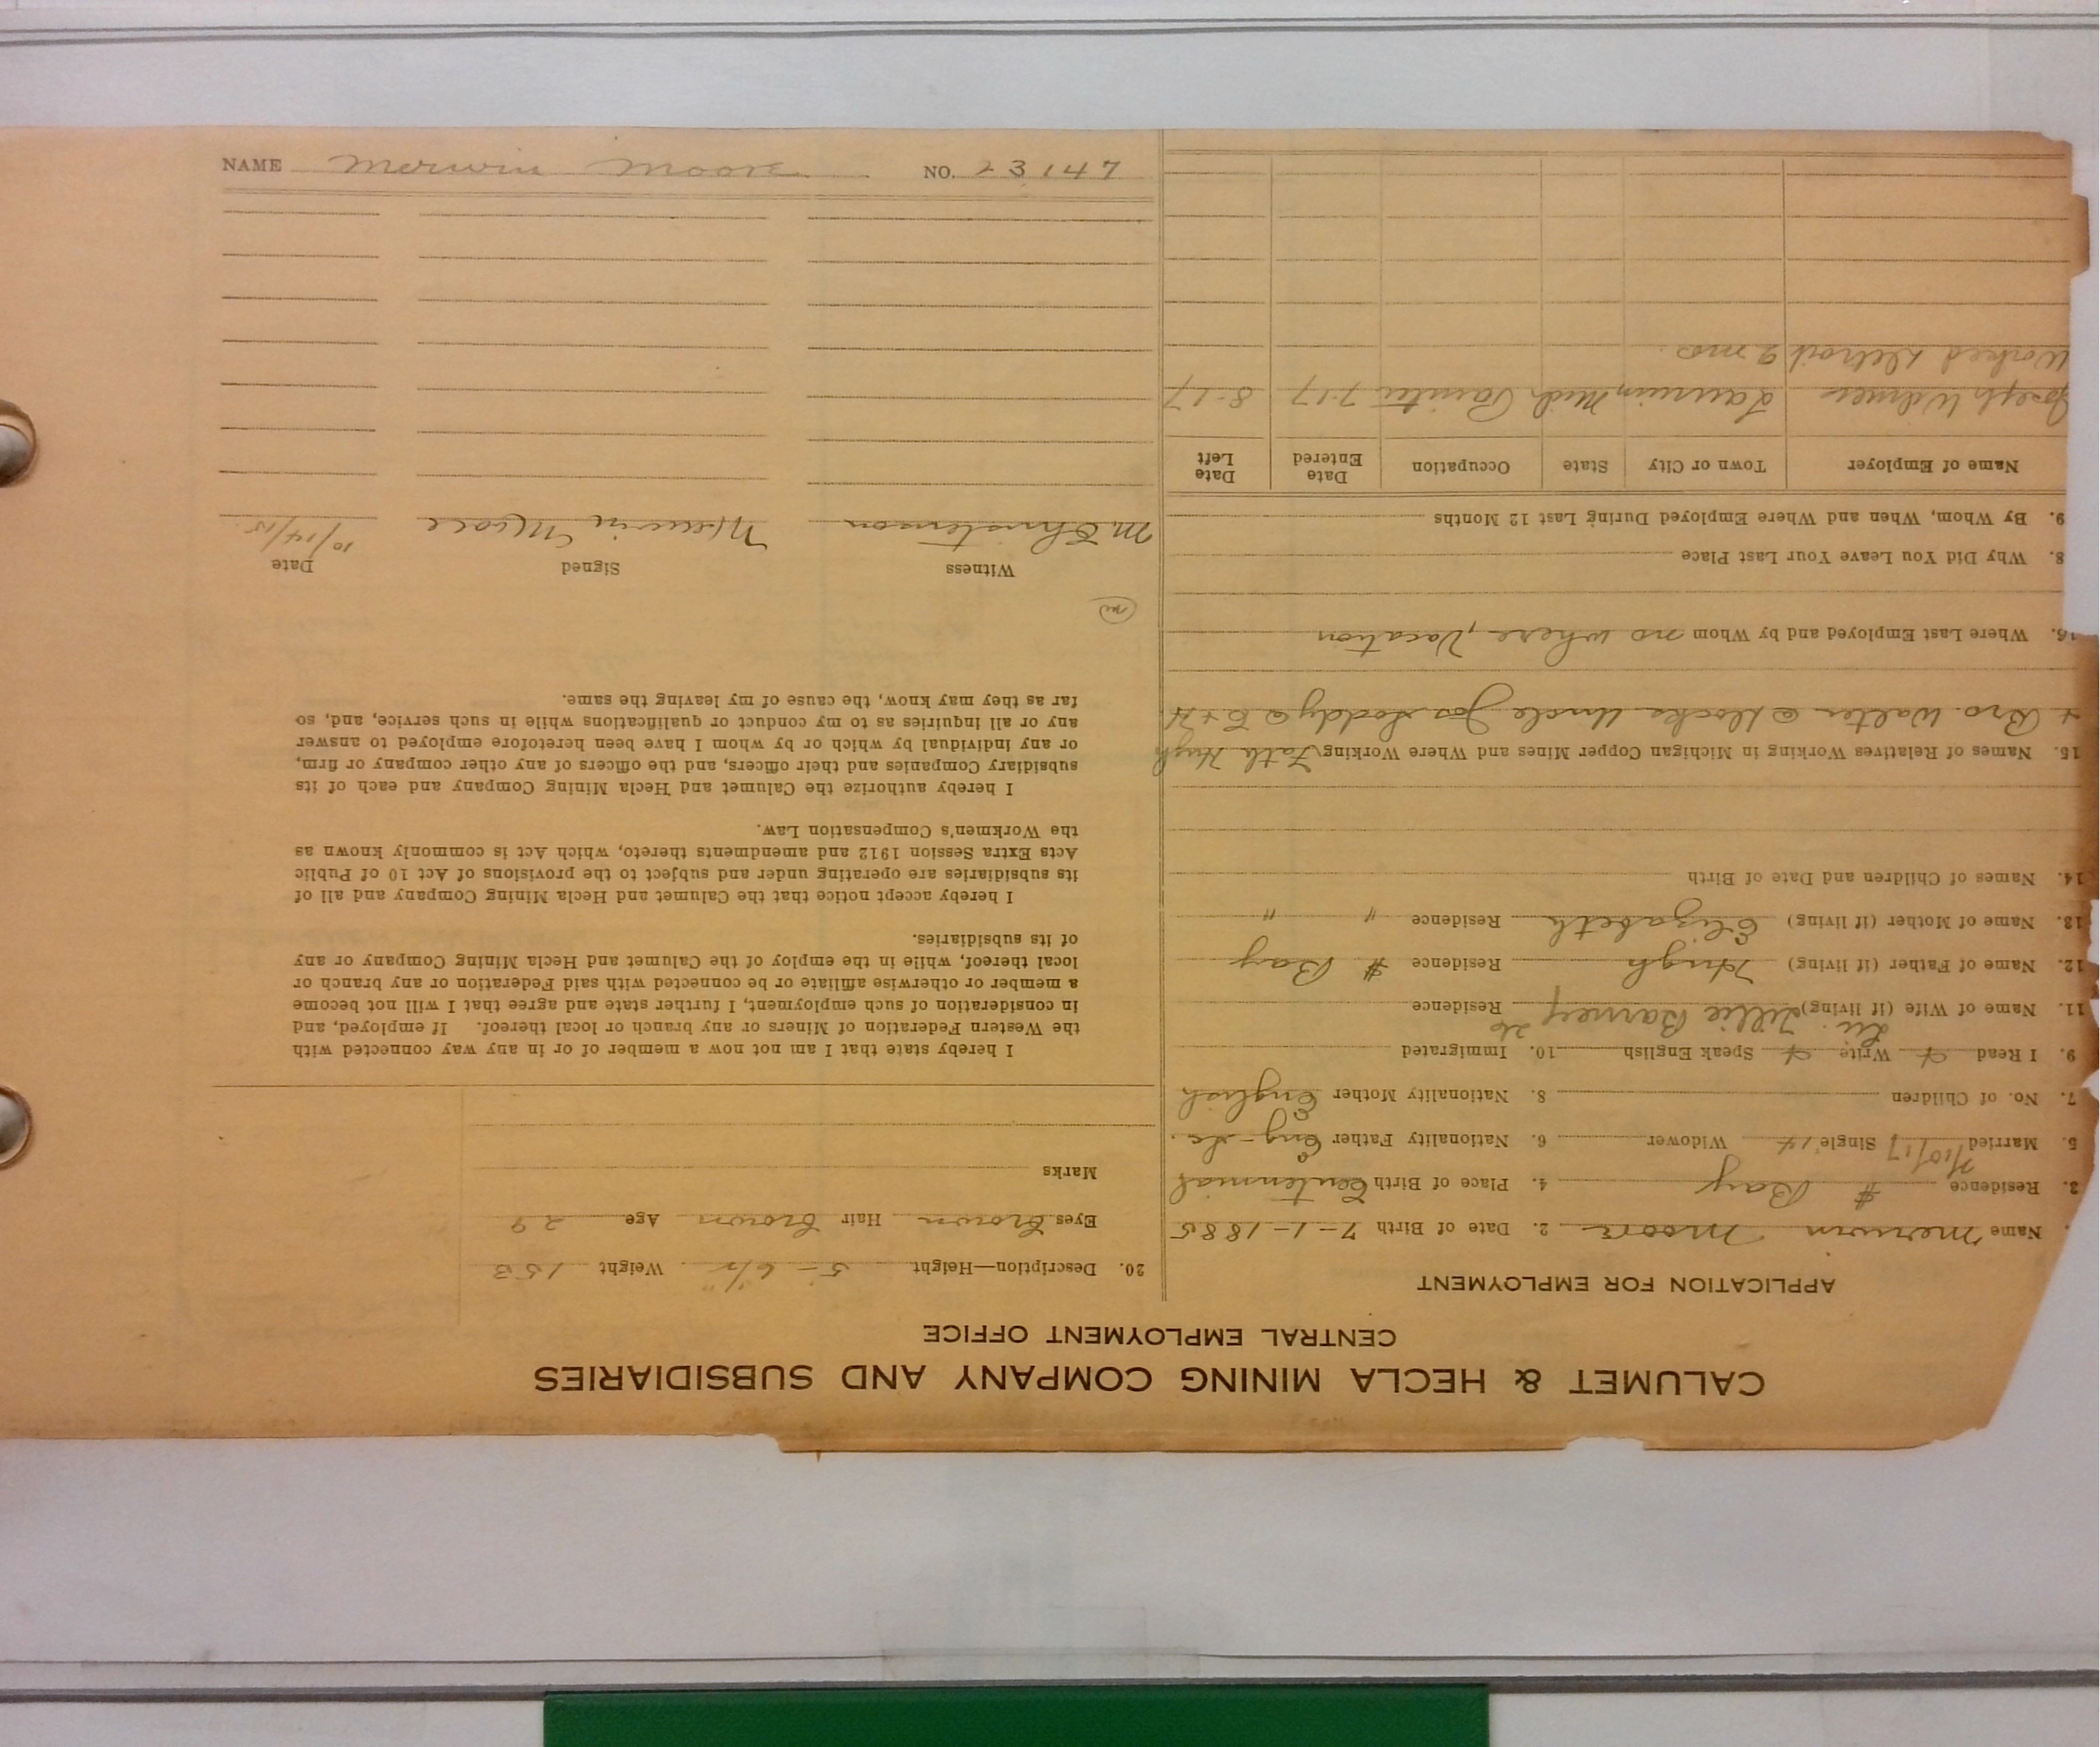 CALUMET & HECLA MINING COMPANY AND SUBSIDIARIES
CENTRAL EMPLOYMENT OFFICE
APPLICATION FOR EMPLOYMENT
Name Merwin Moore 2. Date of Birth 7-1-1885
3. Residence # Bay 4. Place of Birth Centennial
5. Married 7/10/17 Single Widower 6. Nationality Father Eng-
7. No. of Children 8. Nationality Mother English
9. I Read Write Speak English 10. Immigrated
11. Name of Wife (if living) Lillie Barney Residence
12. Name of Father (if living) Hugh Residence # Bay
13. Name of Mother (if living) Elizabeth Residence " "
14. Names of Children and Date of Birth
15. Names of Relatives Working in Michigan Copper Mines and Where Working Fath Hugh
+ Bro. Walter @ Docks Uncle Jos Soddy @ C + H
16. Where Last Employed and by Whom no where, Vacation
8. Why Did You Leave Your Last Place
9. By Whom, When and Where Employed During Last 12 Months
Name of Employer Town or City State Occupation Date Entered Date Left
Joseph Laurium, Mich 7-17 8-17
Worked Detroit 2 mos.
20. Description—Height 5-6½" Weight 153
Eyes Brown Hair Brown Age 29
Marks
I hereby state that I am not now a member of or in any way connected with
the Western Federation of Miners or any branch or local thereof. If employed, and
in consideration of such employment, I further state and agree that I will not become
a member or otherwise affiliate or be connected with said Federation or any branch or
local thereof, while in the employ of the Calumet and Hecla Mining Company or any
of its subsidiaries.
I hereby accept notice that the Calumet and Hecla Mining Company and all of
its subsidiaries are operating under and subject to the provisions of Act 10 of Public
Acts Extra Session 1912 and amendments thereto, which Act is commonly known as
the Workmen's Compensation Law.
I hereby authorize the Calumet and Hecla Mining Company and each of its
subsidiary Companies and their officers, and the officers of any other company or firm,
or any individual by which or by whom I have been heretofore employed to answer
any or all inquiries as to my conduct or qualifications while in such service, and, so
far as they may know, the cause of my leaving the same.
m
Witness Signed Date
M Christenson Merwin Moore 10/14/15
NAME Merwin Moore NO. 23147